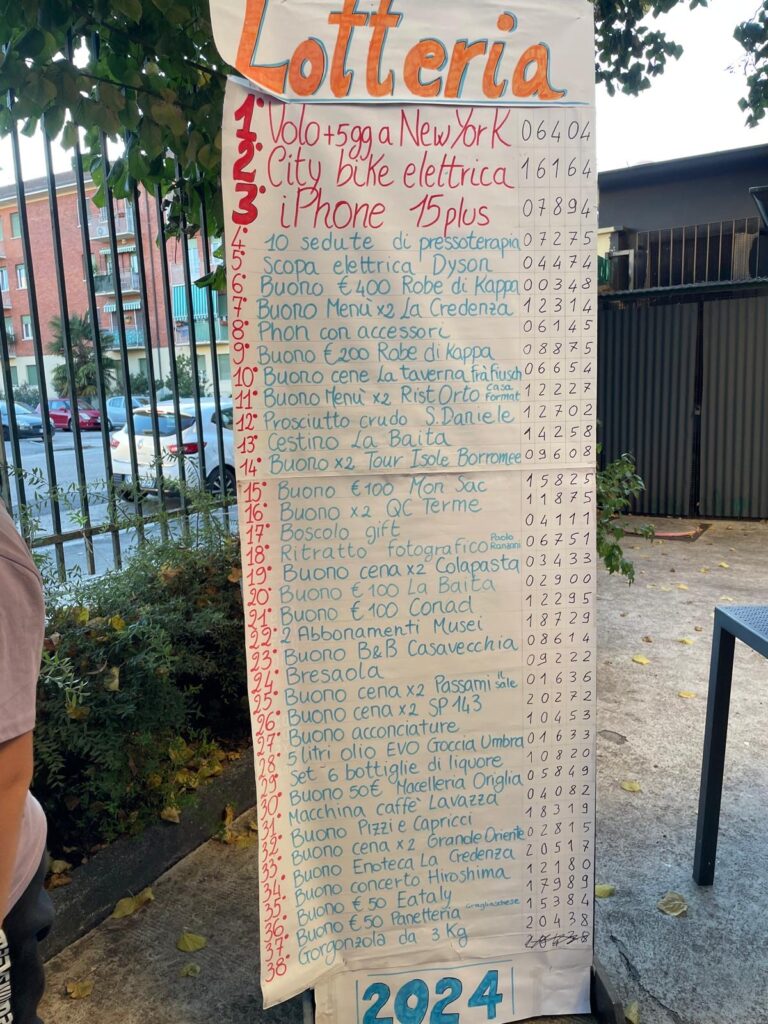 Lotteria
1° Volo+5gg a New York 06404
2° City bike elettrica 16164
3° iPhone 15 plus 07894
4° 10 sedute di pressoterapia 07275
5° Scopa elettrica Dyson 04474
6° Buono €400 Robe di Kappa 00348
7° Buono Menù x2 La Credenza 12314
8° Phon con accessori 06145
9° Buono €200 Robe di Kappa 08875
10° Buono cene La taverna Frà Fiusch 06654
11° Buono Menù x2 Rist Orto Casa Format 12227
12° Prosciutto crudo S. Daniele 12702
13° Cestino La Baita 14258
14° Buono x2 Tour Isole Borromee 09608
15° Buono €100 Mon Sac 15825
16° Buono x2 QC Terme 11875
17° Boscolo gift 04111
18° Ritratto fotografico Paolo Ranzani 06751
19° Buono cena x2 Colapasta 03433
20° Buono €100 La Baita 02900
21° Buono €100 Conad 12295
22° 2 Abbonamenti Musei 18729
23° Buono B&B Casavecchia 08614
24° Bresaola 09222
25° Buono cena x2 Passami il sale 01636
26° Buono cena x2 SP 143 20272
27° Buono acconciature 10453
28° 5 litri olio EVO Goccia Umbra 01633
29° Set 6 bottiglie di liquore 10820
30° Buono 50€ Macelleria Origlia 05849
31° Macchina caffè Lavazza 04082
32° Buono Pizzi e Capricci 18319
33° Buono cena x2 Grande Oriente 02815
34° Buono Enoteca La Credenza 20517
35° Buono concerto Hiroshima 12180
36° Buono €50 Eataly 17989
37° Buono €50 Panetteria Grugliaschese 15384
38° Gorgonzola da 3 Kg 20438
2024